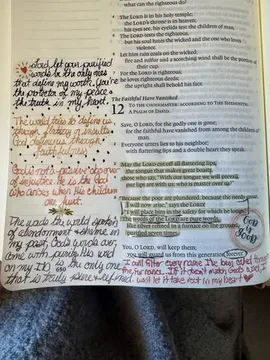 what can the righteous do?
4 The LORD is in his holy temple;
the LORD's throne is in heaven;
his eyes see, his eyelids test the children of man.
5 The LORD tests the righteous,
but his soul hates the wicked and the one who loves
6 Let him rain coals on the wicked;
fire and sulfur and a scorching wind shall be the portion of
their cup.
7 For the LORD is righteous;
he loves righteous deeds;
the upright shall behold his face.
Lord let your purified
words be the only ones
that define my worth. You're
the protector of my peace +
the truth in my heart.
The world tries to define us
through flattery or insults
God defines us through
faithfulness.
God is not a passive observer
of injustice. He is the God
who arises when his children
are hurt.
The world
of abandonment + shame in
my past, God's words over
me on my ID is the only one
that is truly pure + refined
The Faithful Have Vanished
12 TO THE CHOIRMASTER: ACCORDING TO THE SHEMINITH.
A PSALM OF DAVID.
Save, O LORD, for the godly one is gone;
for the faithful have vanished from among the children of
man.
Everyone utters lies to his neighbor;
with flattering lips and a double heart they speak.
May the LORD cut off all flattering lips,
the tongue that makes great boasts,
those who say, "With our tongue we will prevail,
our lips are with us; who is master over us?"
"Because the poor are plundered, because the needy groan,
I will now arise," says the LORD;
"I will place him in the safety for which he longs."
The words of the LORD are pure words,
like silver refined in a furnace on the ground,
purified seven times.
God is God
You, O LORD, will keep them;
you will guard us from this generation forever.
I will filter every name I've been called through
the furnace. If it doesn't match God's word, I
wont let it take root in my heart